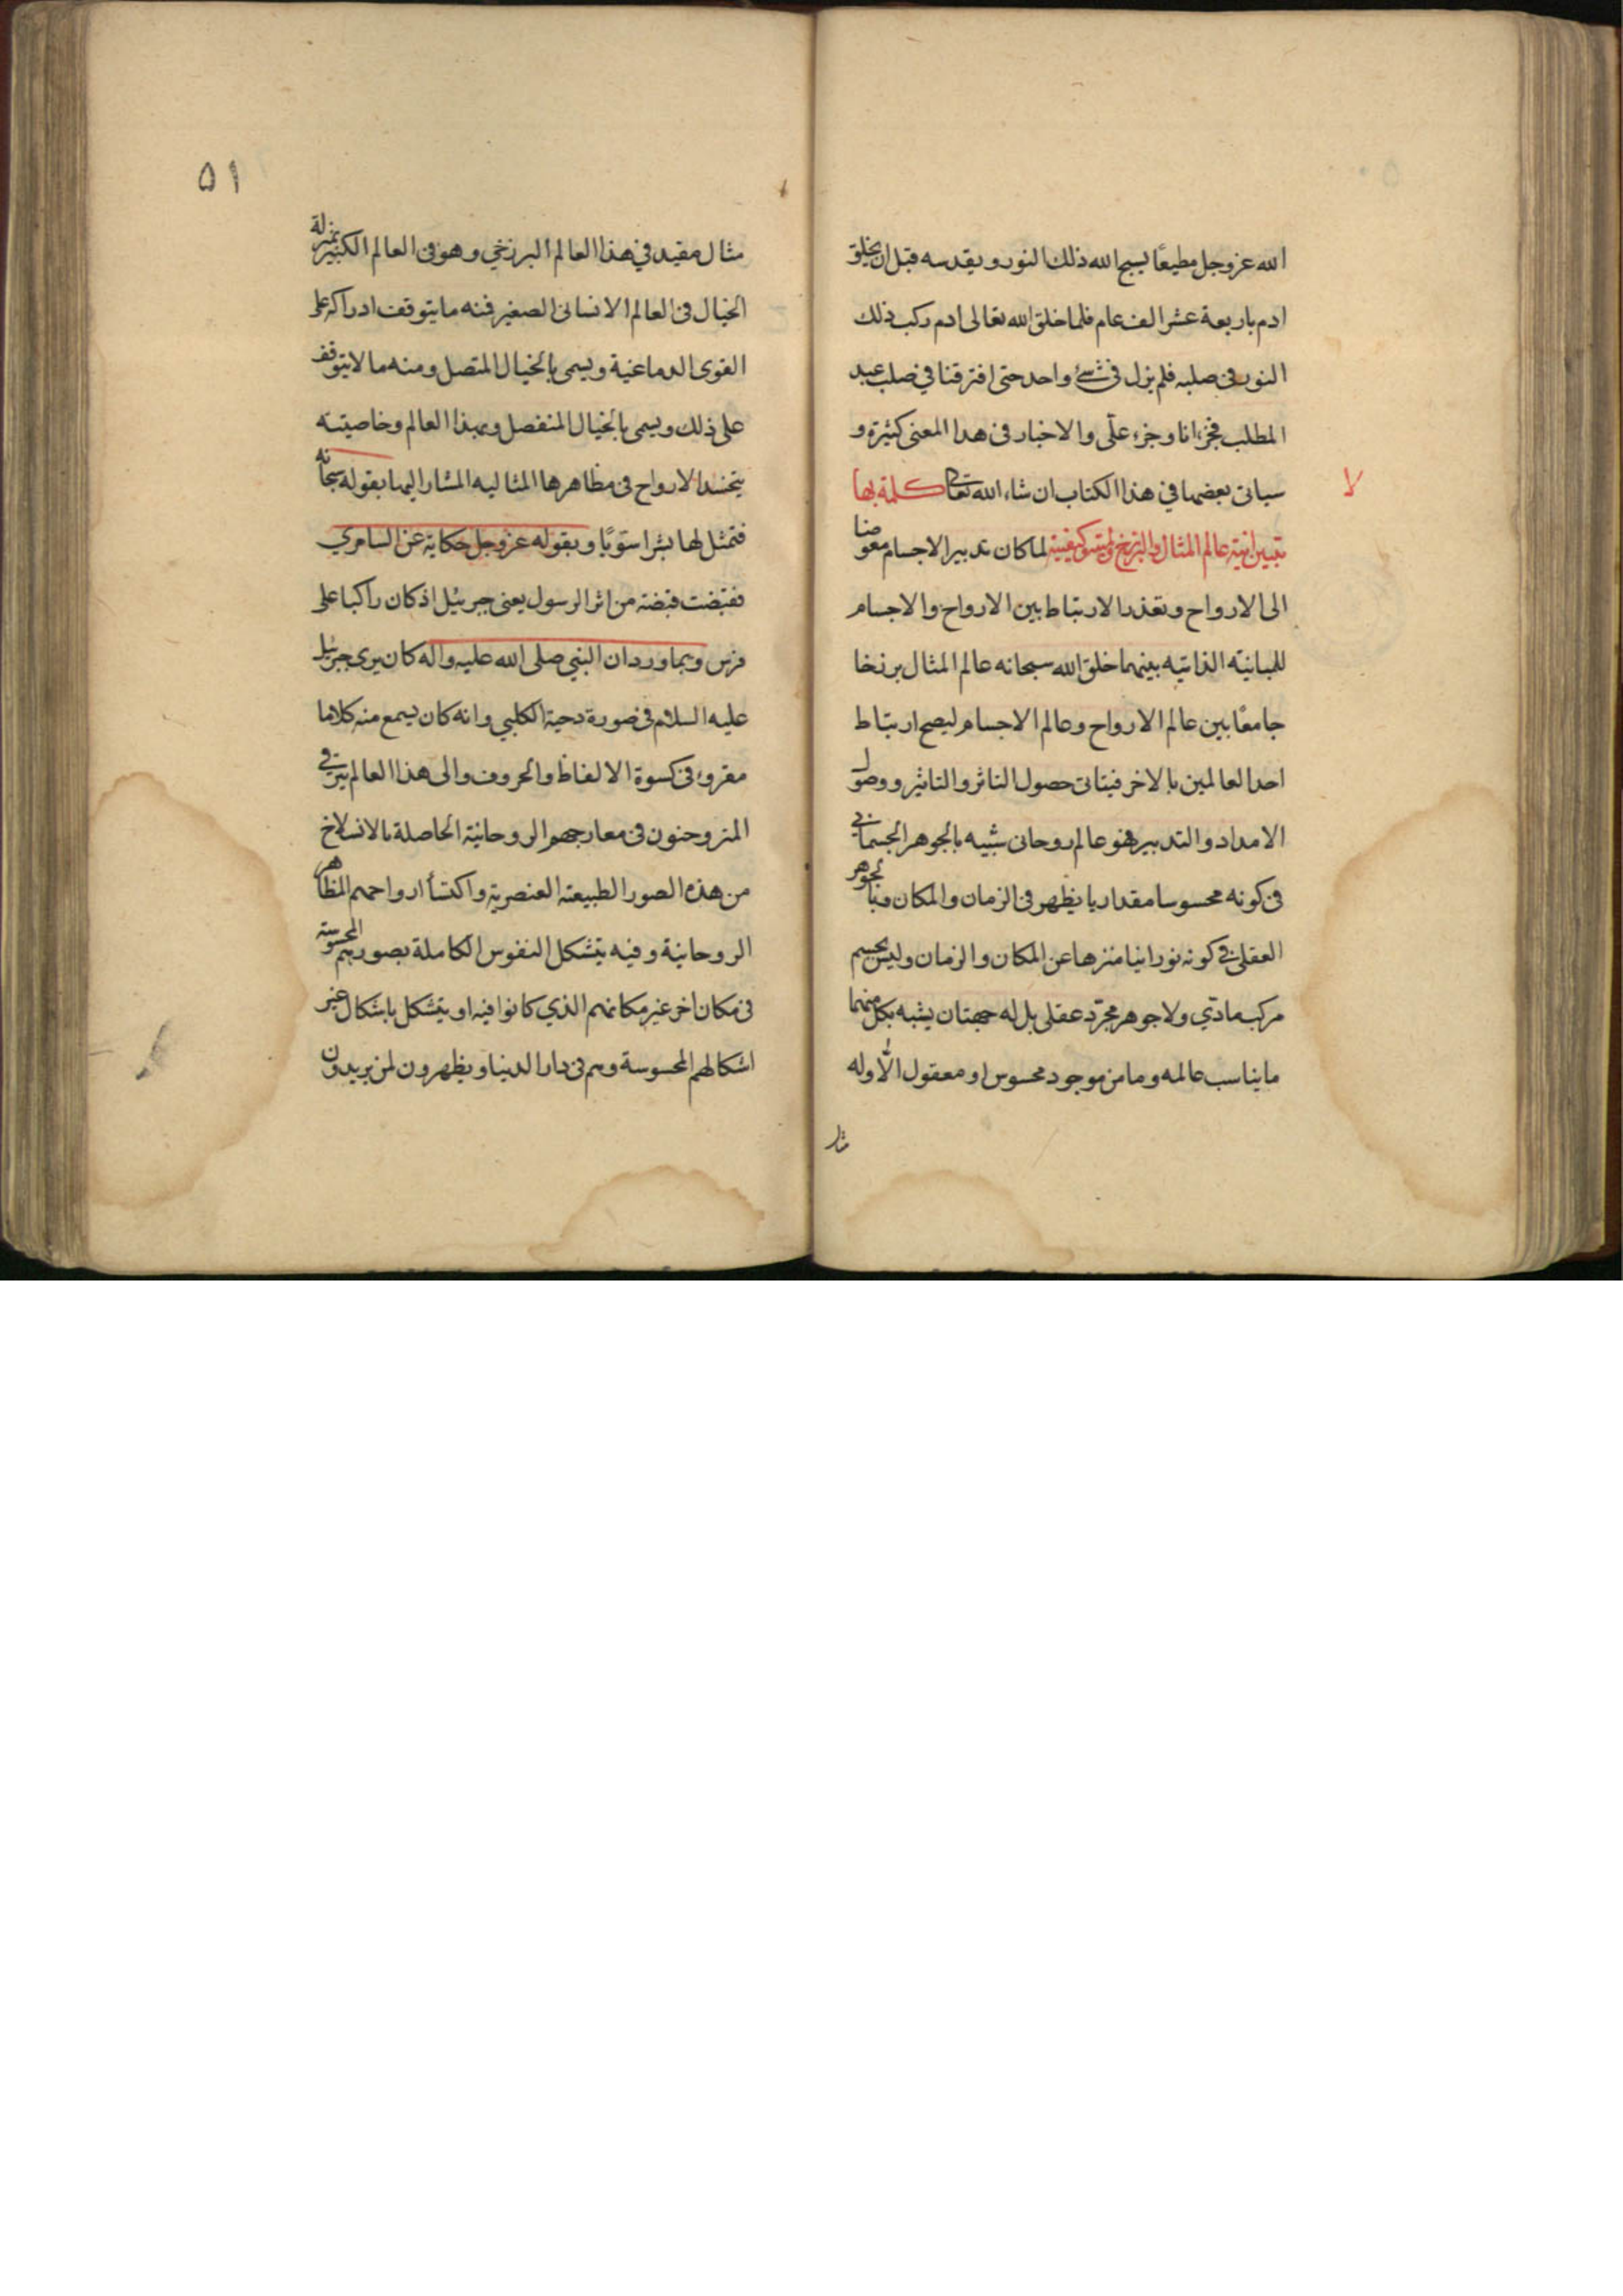 الله عز وجل مطيعًا يسبح الله ذلك النور ويقدسه قبل ان يخلق
ادم باربعة عشر الف عام فلما خلق الله تعالى ادم ركب ذلك
النور في صلبه فلم يزل في شئ واحد حتى افترقنا في صلب عبد
المطلب فجزء انا وجزء علّى والاخبار في هذا المعنى كثيرة و
سياتى بعضها في هذا الكتاب ان شاء الله تعالى كلمة بها
لا
يتبين انية عالم المثال والبرزخ وكيفيته لما كان تدبير الاجسام مفوضا
الى الارواح وتعذر الارتباط بين الارواح والاجسام
للمباينة الذاتيه بينهما خلق الله سبحانه عالم المثال برزخا
جامعًا بين عالم الارواح وعالم الاجسام ليصح ارتباط
احد العالمين بالاخر فيتاتى حصول التاثر والتاثير ووصول
الامداد والتدبير فهو عالم روحانى شبيه بالجوهر الجسمانى
فى كونه محسوسا مقداريا يظهر فى الزمان والمكان وبالجوهر
العقلى فى كونه نورانيا منزها عن المكان والزمان وليس بجسم
مركب مادّي ولا جوهر مجرّد عقلى بل له جهتان يشبه بكل منهما
ما يناسب عالمه وما من موجود محسوس او معقول الّا وله
مثال
۵۱
مثال مقيد في هذا العالم البرزخي وهو فى العالم الكبير بمنزلة
الخيال فى العالم الانسانى الصغير فمنه ما يتوقف ادراكه على
القوى الدماغية ويسمى بالخيال المتصل ومنه ما لا يتوقف
على ذلك ويسمى بالخيال المنفصل وبهذا العالم وخاصيته
يتجسد الارواح فى مظاهرها المثاليه المشار اليها بقوله سبحانه
فتمثل لها بشرا سويًا وبقوله عز وجل حكاية عن السامري
فقبضت قبضة من اثر الرسول يعنى جبرئيل اذ كان راكبا على
فرس وبما ورد ان النبي صلى الله عليه واله كان يرى جبرئيل
عليه السلام فى صورة دحية الكلبي وانه كان يسمع منه كلاما
مقروء فى كسوة الالفاظ والحروف والى هذا العالم يترقى
المتروحنون فى معارجهم الروحانية الحاصلة بالانسلاخ
من هذه الصور الطبيعة العنصرية واكتسا ارواحهم المظاهر
الروحانية وفيه يتشكل النفوس الكاملة بصورهم المحسوسة
فى مكان اخر غير مكانهم الذي كانوا فيه او يتشكل باشكال غير
اشكالهم المحسوسة وهم فى دار الدنيا ويظهرون لمن يريدون